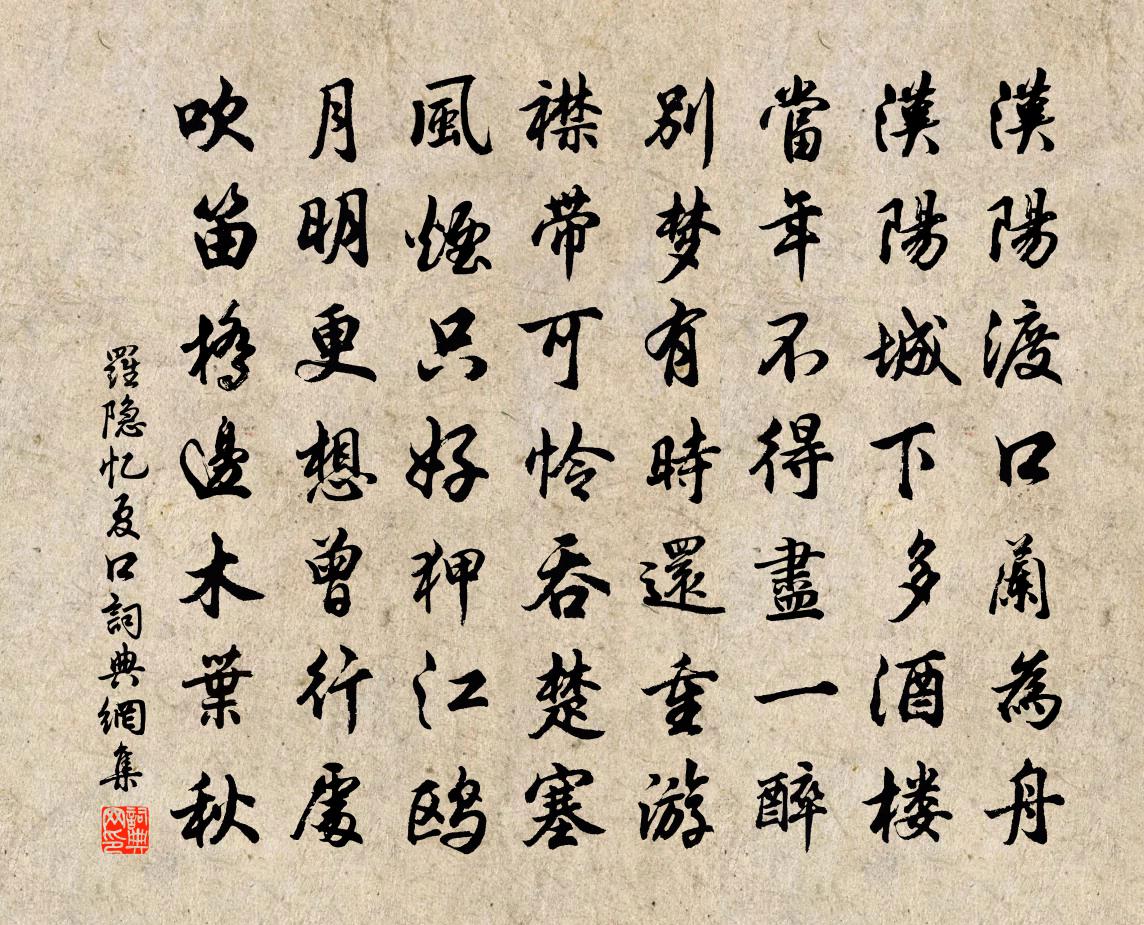 漢陽渡口蘭為舟
漢陽城下多酒楼
當年不得盡一醉
別梦有時還重游
襟帶可怜吞楚塞
風煙只好狎江鸥
月明更想曾行處
吹笛橋邊木葉秋
羅隐忆夏口詞典網集
詞典網印